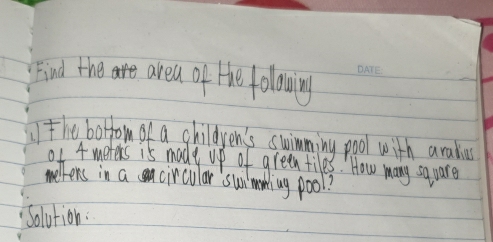 Find the are area of the following
DATE
1) The bottom of a children's swimming pool with a radius
of 4 meters is made up of green tiles. How many square
meters in a circular swimming pool?
Solution: